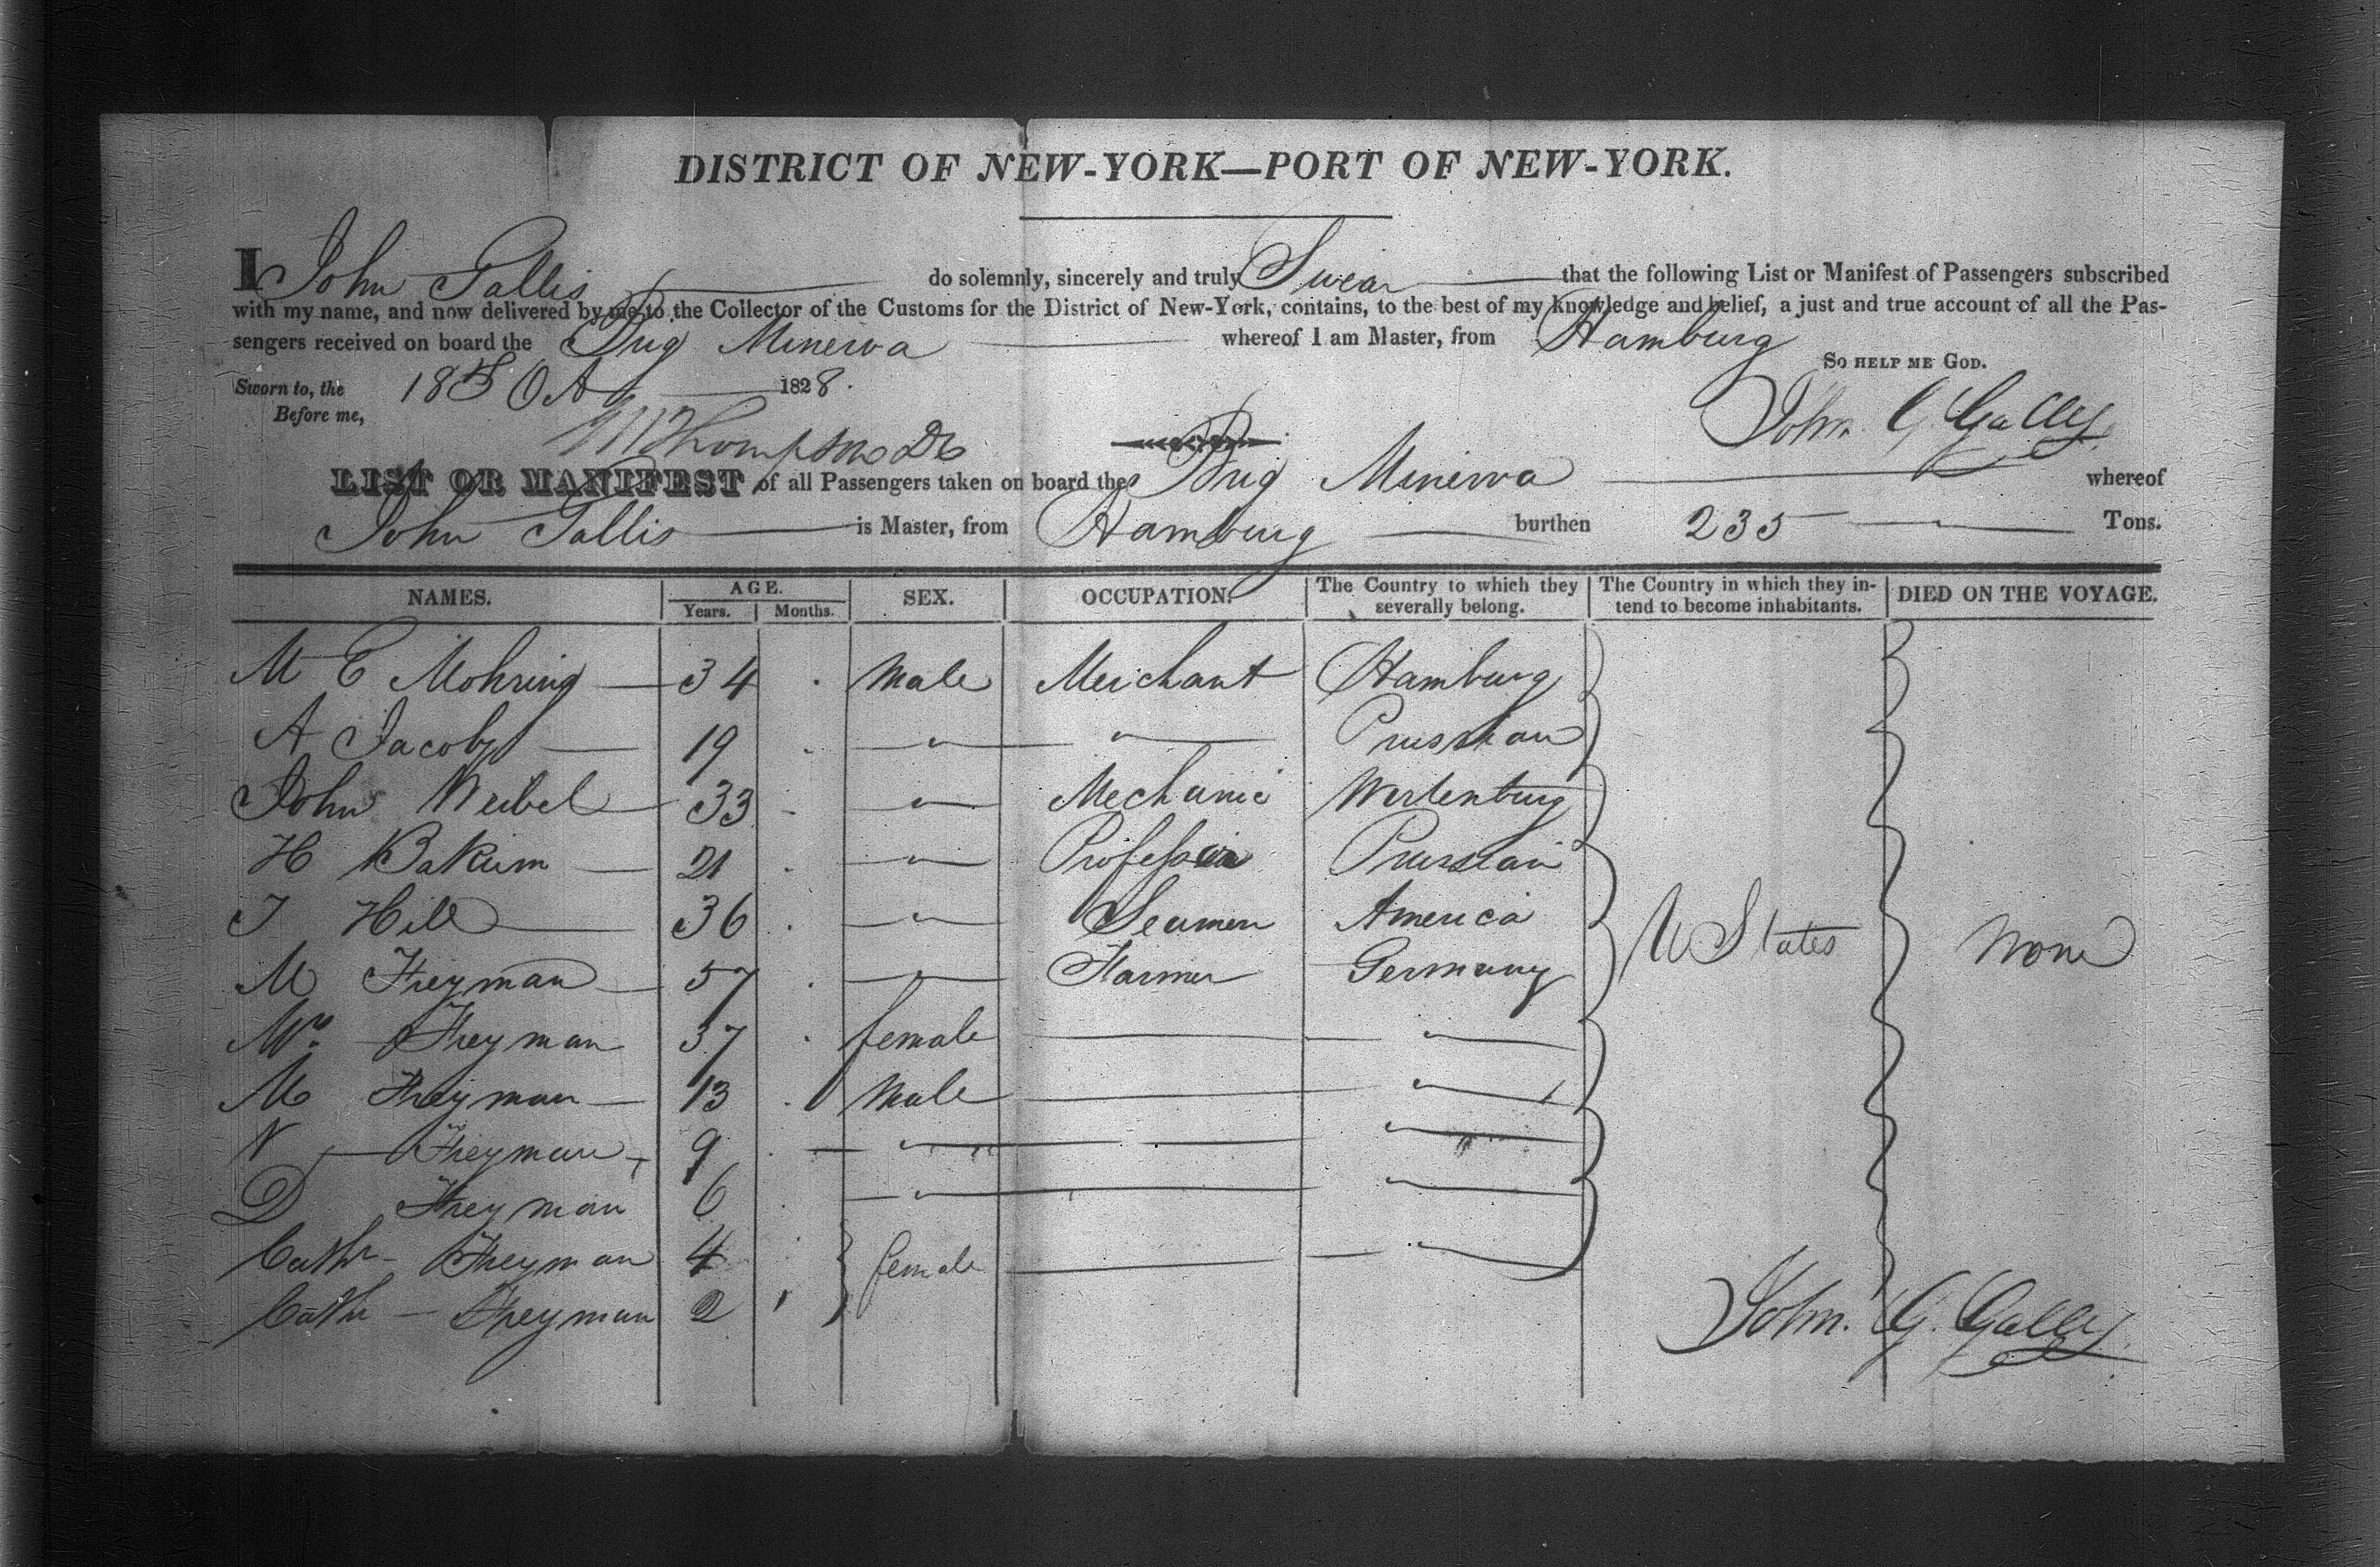 DISTRICT OF NEW-YORK—PORT OF NEW-YORK.
I John Gallis do solemnly, sincerely and truly Swear that the following List or Manifest of Passengers subscribed
with my name, and now delivered by me to the Collector of the Customs for the District of New-York, contains, to the best of my knowledge and belief, a just and true account of all the Pas-
sengers received on board the Brig Minerva whereof I am Master, from Hamburg
SO HELP ME GOD.
Sworn to, the 18 Oct 1828.
Before me,
Thompson John G Gally
LIST OR MANIFEST of all Passengers taken on board the Brig Minerva whereof
John Gallis is Master, from Hamburg burthen 235 Tons.
NAMES. AGE. Years. Months. SEX. OCCUPATION. The Country to which they severally belong. The Country in which they in-tend to become inhabitants. DIED ON THE VOYAGE.
M C Mohring 34 Male Merchant Hamburg
A Jacoby 19 " " Prussian
John Weibel 33 " Mechanic Wertenburg
H Bakum 21 " Professor Prussian
J Hill 36 " Seamen America
M Freyman 57 " Farmer Germany
U States None
Mrs Freyman 37 female "
M Freyman 13 Male "
N Freyman 9 " "
D Freyman 6 " "
Cathr Freyman 4 female "
Cathr Freyman 2
John. G. Gally